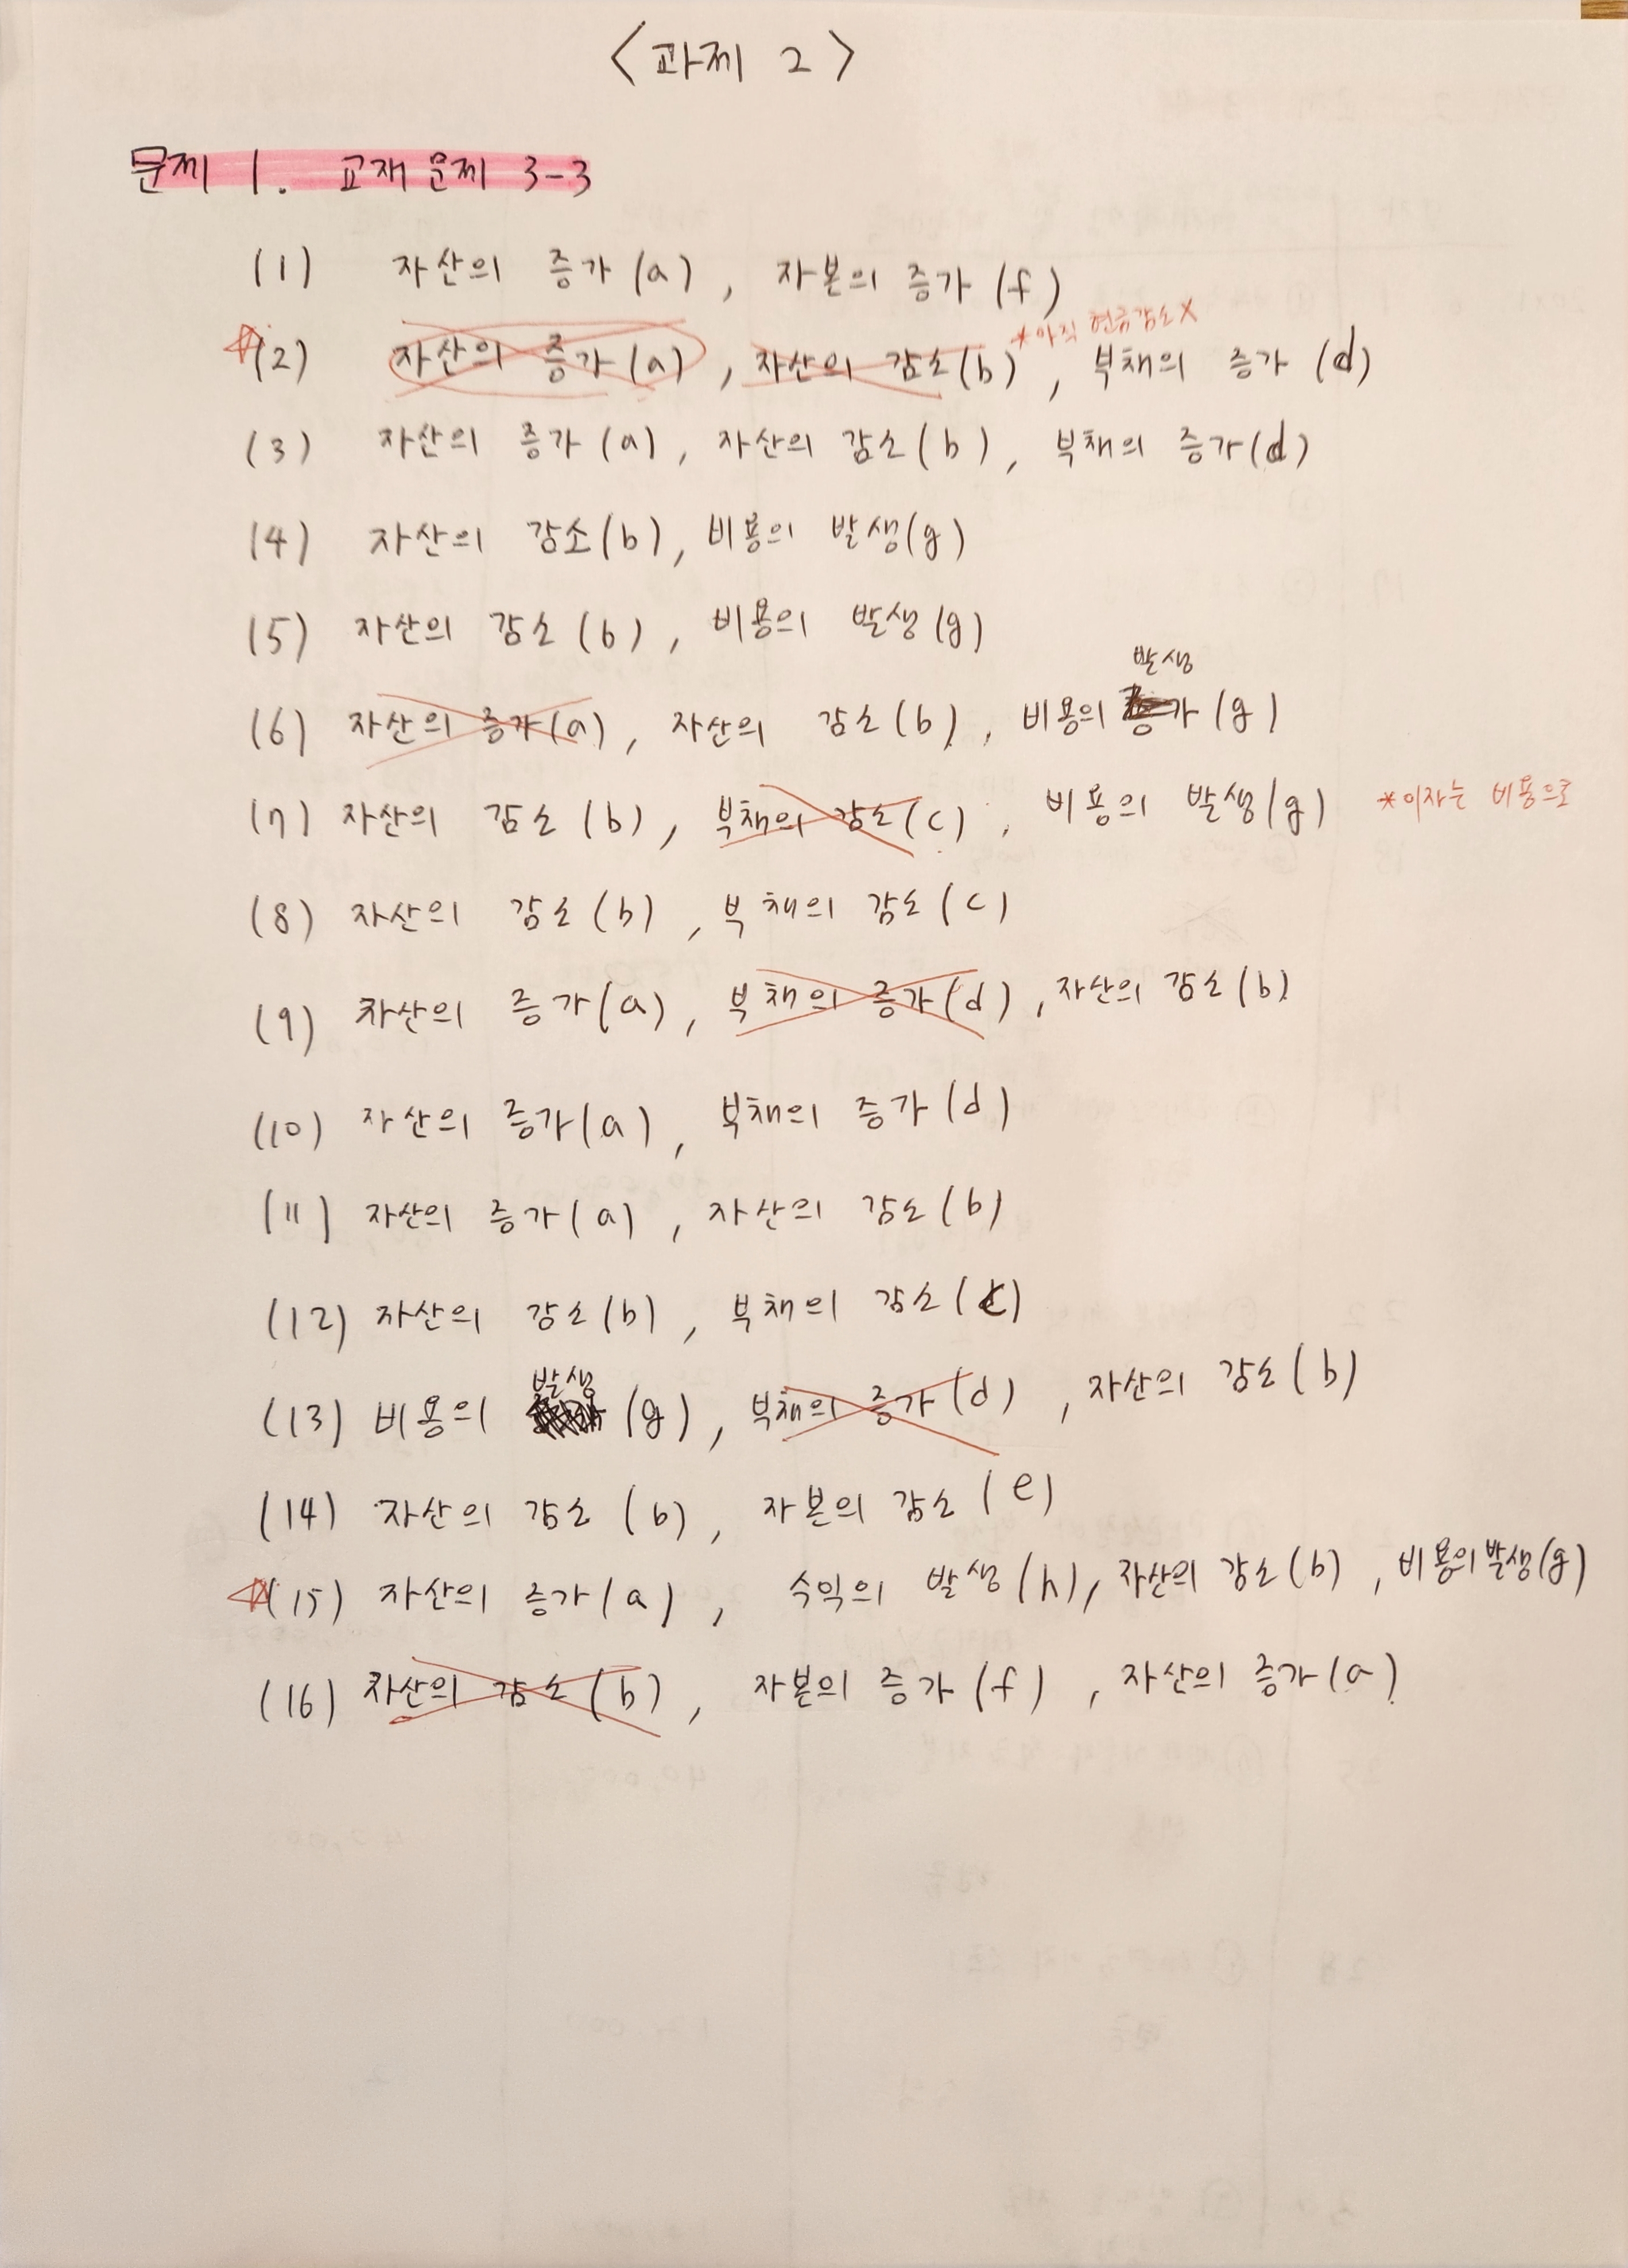 <과제 2>
문제 1. 교재 문제 3-3
(1) 자산의 증가(a), 자본의 증가(f)
*아직 현금감소X
☆(2) 자산의 증가(a), 자산의 감소(b), 부채의 증가(d)
(3) 자산의 증가(a), 자산의 감소(b), 부채의 증가(d)
(4) 자산의 감소(b), 비용의 발생(g)
(5) 자산의 감소(b), 비용의 발생(g)
발생
(6) 자산의 증가(a), 자산의 감소(b), 비용의 증가(g)
(7) 자산의 감소(b), 부채의 감소(c), 비용의 발생(g) *이자는 비용으로
(8) 자산의 감소(b), 부채의 감소(c)
(9) 자산의 증가(a), 부채의 증가(d), 자산의 감소(b)
(10) 자산의 증가(a), 부채의 증가(d)
(11) 자산의 증가(a), 자산의 감소(b)
(12) 자산의 감소(b), 부채의 감소(c)
발생
(13) 비용의 (g), 부채의 증가(d), 자산의 감소(b)
(14) 자산의 감소(b), 자본의 감소(e)
☆(15) 자산의 증가(a), 수익의 발생(h), 자산의 감소(b), 비용의 발생(g)
(16) 자산의 감소(b), 자본의 증가(f), 자산의 증가(a)